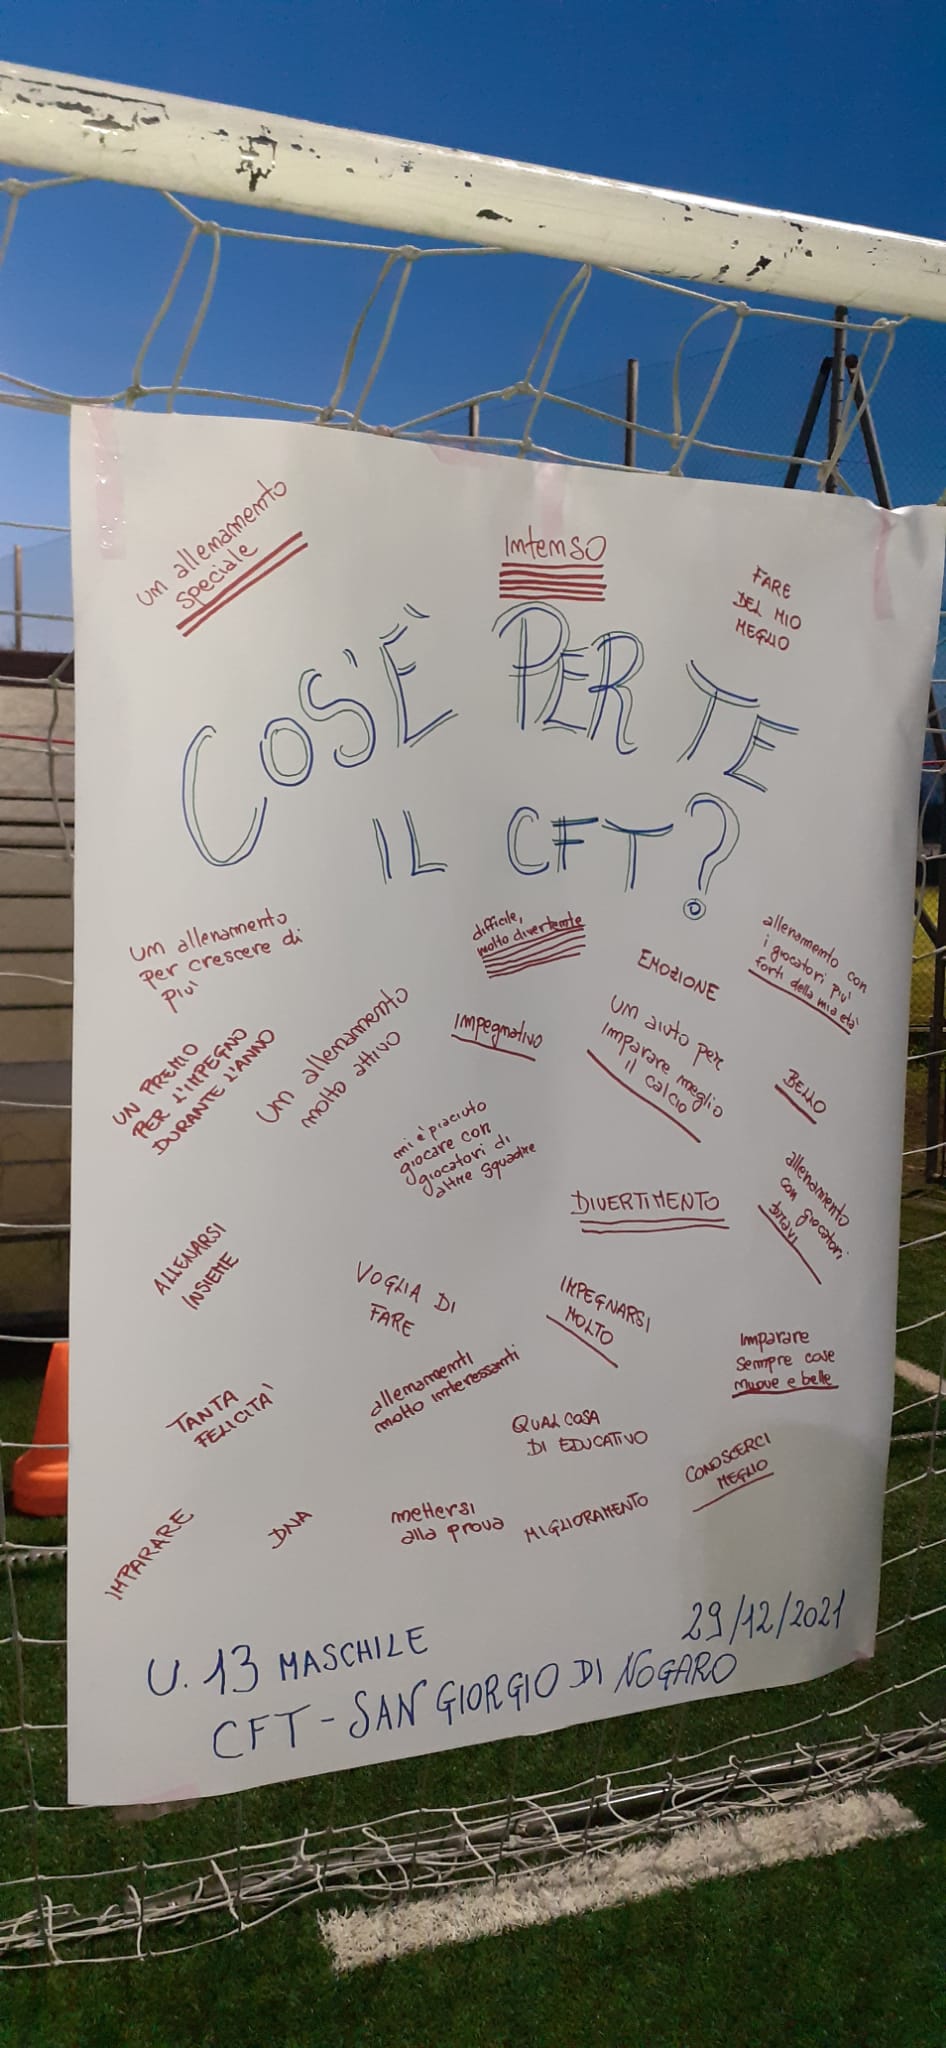 Un allenamento
speciale
Intenso
FARE
DEL MIO
MEGLIO
COS'È PER TE
IL CFT?
Un allenamento
per crescere di
piu'
difficile,
molto divertente
EMOZIONE
allenamento con
i giocatori piu'
forti della mia età
UN PREMIO
PER L'IMPEGNO
DURANTE L'ANNO
Un allenamento
molto attivo
Impegnativo
Un aiuto per
imparare meglio
il calcio
BELLO
mi è piaciuto
giocare con
giocatori di
altre squadre
DIVERTIMENTO
allenamento
con giocatori
bravi
ALLENARSI
INSIEME
VOGLIA DI
FARE
IMPEGNARSI
MOLTO
Imparare
sempre cose
nuove e belle
TANTA
FELICITA'
allenamenti
molto interessanti
QUALCOSA
DI EDUCATIVO
CONOSCERCI
MEGLIO
IMPARARE
DNA
mettersi
alla prova
MIGLIORAMENTO
U. 13 MASCHILE
29/12/2021
CFT - SAN GIORGIO DI NOGARO